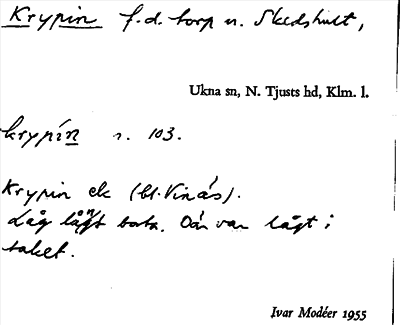 Krypin f.d. torp u. Skedshult,
Ukna sn, N. Tjusts hd, Klm. l.
krypín n. 103.
Krypin ek (bl. Vinås).
Låg långt borta. Där var lågt i
taket.
Ivar Modéer 1955